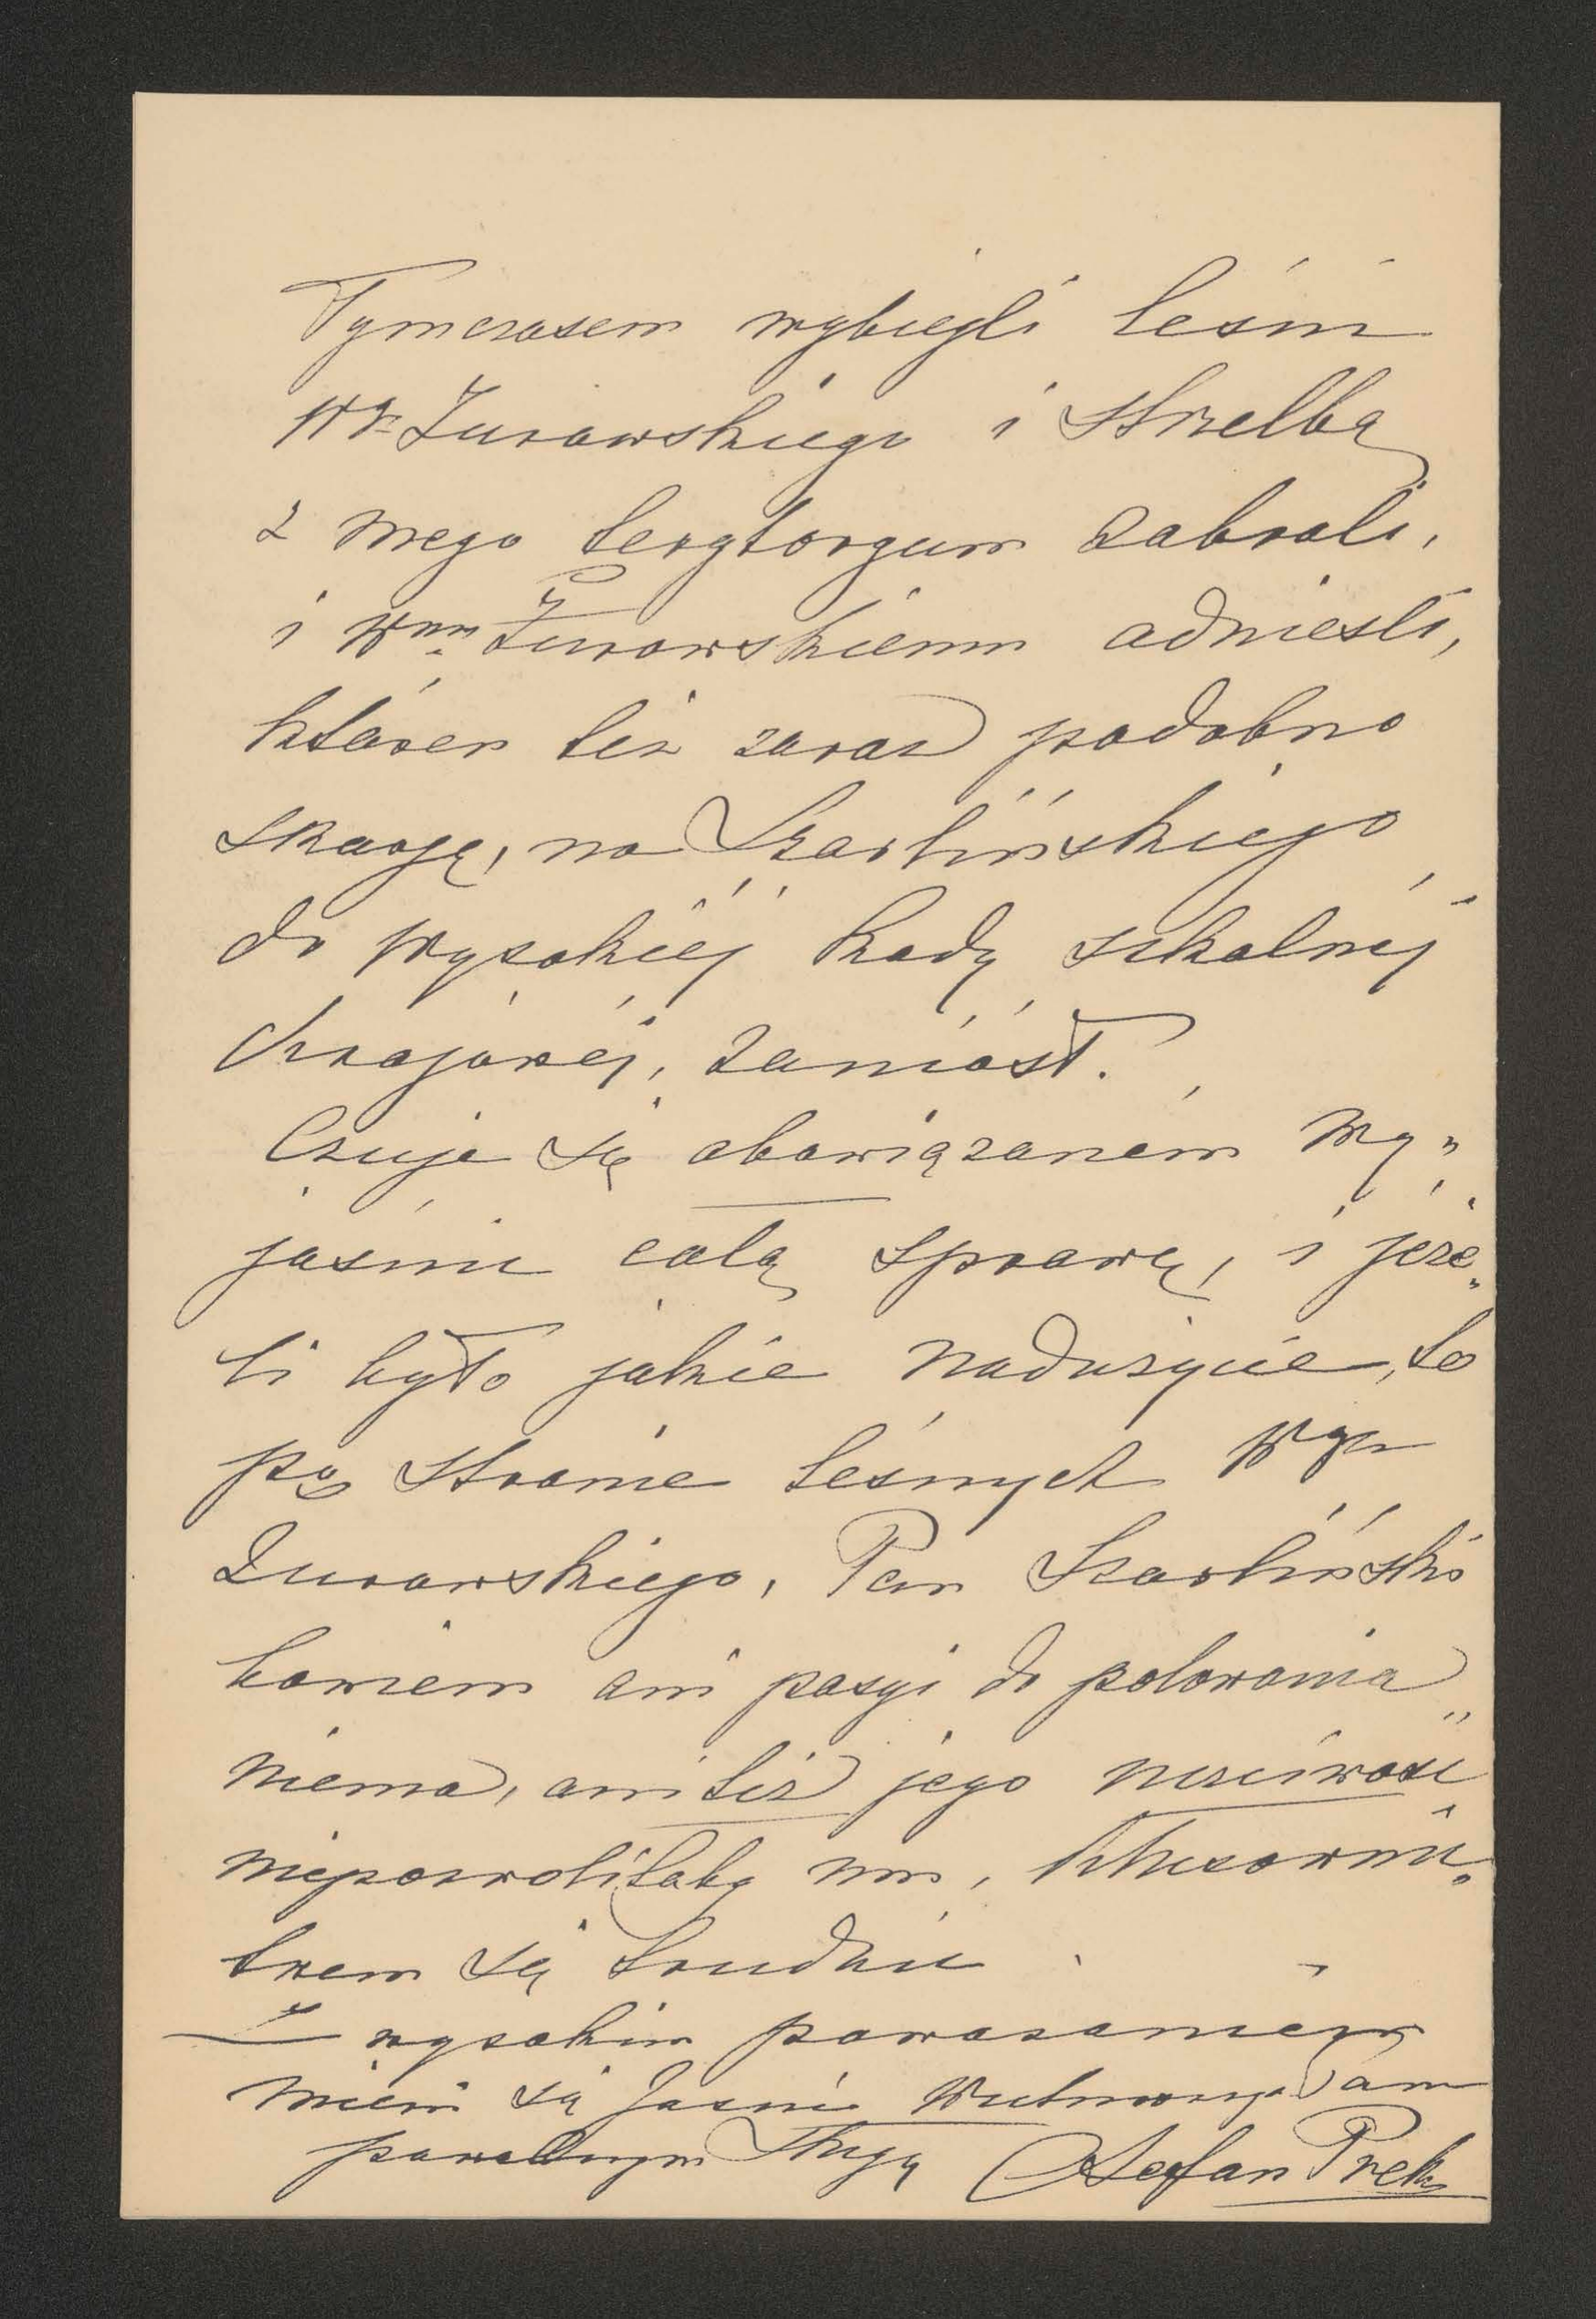 Tymczasem wybiegli leśni
Wgo Żurawskiego i strzelbę
z mego terytoryum zabrali,
i Wmu Żurawskiemu odnieśli,
któren też zaraz podobno
skargę, na Szarlińskiego
do Wysokiéj Rady szkolnéj
Krajowéj, zaniósł.
Czuje się obowiązaném wy„
jaśnić całą sprawę, i jeże„
li było jakie nadużycie, to
po stronie leśnych Wgo
Żurawskiego, Pan Szarliński
bowiem ani pasyi do polowania
niema, ani też jego uczciwość
niepozwoliłaby mu, kłusowni„
twem się trudnić
Z wysokim poważaniem
mieni się Jaśnie Wielmożnego Pana
powolnym sługą Stefan Prek